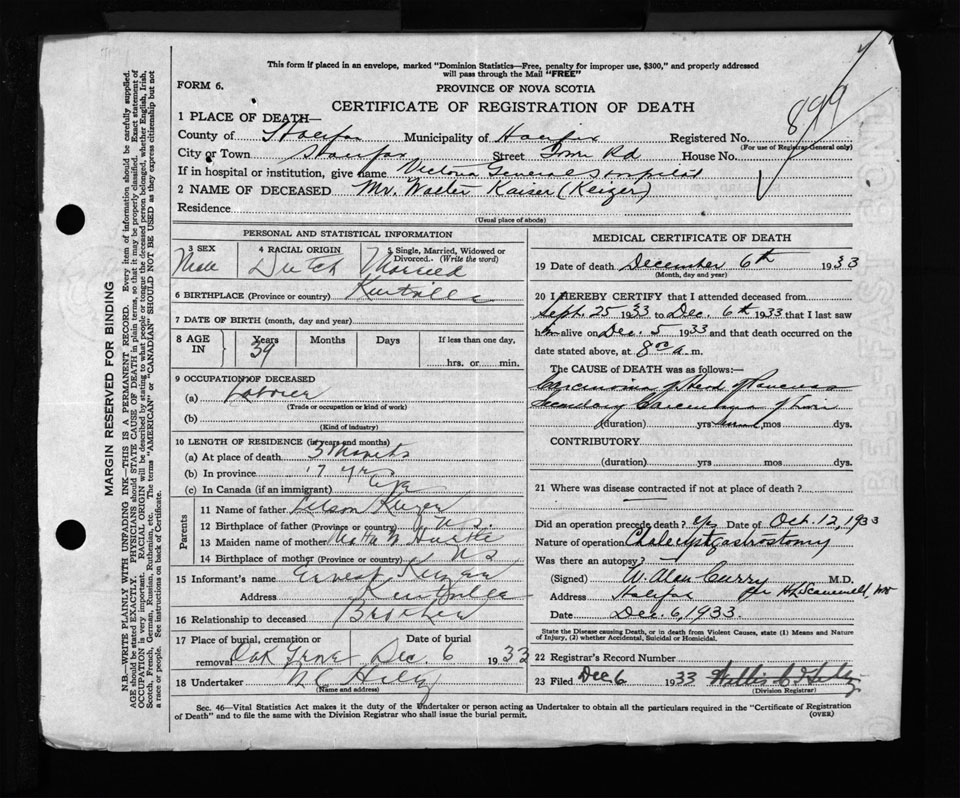 This form if placed in an envelope, marked "Dominion Statistics—Free, penalty for improper use, $300," and properly addressed
will pass through the Mail "FREE"
FORM 6.
PROVINCE OF NOVA SCOTIA
CERTIFICATE OF REGISTRATION OF DEATH
899
1 PLACE OF DEATH—
County of Halifax Municipality of Halifax Registered No.
(For use of Registrar General only)
City or Town Halifax Street Tower Rd House No.
If in hospital or institution, give name Victoria General Hospital
2 NAME OF DECEASED Mr. Walter Kaiser (Keizer)
Residence
(Usual place of abode)
PERSONAL AND STATISTICAL INFORMATION
3 SEX 4 RACIAL ORIGIN 5 Single, Married, Widowed or
Divorced. (Write the word)
Male Dutch Married
6 BIRTHPLACE (Province or country) Kentville
7 DATE OF BIRTH (month, day and year)
8 AGE IN Years Months Days If less than one day,
39
hrs. or min.
9 OCCUPATION OF DECEASED
(a) Laborer
(Trade or occupation or kind of work)
(b)
(Kind of industry)
10 LENGTH OF RESIDENCE (in years and months)
(a) At place of death 3 Months
(b) In province
(c) In Canada (if an immigrant) Life
Parents
11 Name of father Keizer
12 Birthplace of father (Province or country) N.S.
13 Maiden name of mother
14 Birthplace of mother (Province or country) NS
15 Informant's name Ernest Keizer
Address Kentville
16 Relationship to deceased Brother
17 Place of burial, cremation or Date of burial
removal Oak Grove Dec. 6 1933
18 Undertaker
(Name and address)
MEDICAL CERTIFICATE OF DEATH
19 Date of death December 6th 1933
(Month, day and year)
20 I HEREBY CERTIFY that I attended deceased from
Sept. 25 1933 to Dec. 6th 1933 that I last saw
him alive on Dec. 5 1933 and that death occurred on the
date stated above, at 8 a. m.
The CAUSE of DEATH was as follows:—
Carcinoma of Head of Pancreas
Secondary Carcinoma of Liver
(duration) yrs mos dys.
CONTRIBUTORY
(duration) yrs mos dys.
21 Where was disease contracted if not at place of death?
Did an operation precede death? yes Date of Oct. 12, 1933
Nature of operation Cholecystgastrostomy
Was there an autopsy? —
(Signed) W. Alan Curry M.D.
Address Halifax
Date Dec. 6, 1933.
State the Disease causing Death, or in death from Violent Causes, state (1) Means and Nature
of Injury, (2) whether Accidental, Suicidal or Homicidal.
22 Registrar's Record Number
23 Filed Dec 6 1933
(Division Registrar)
Sec. 46—Vital Statistics Act makes it the duty of the Undertaker or person acting as Undertaker to obtain all the particulars required in the "Certificate of Registration
of Death" and to file the same with the Division Registrar who shall issue the burial permit.
(OVER)
MARGIN RESERVED FOR BINDING
N.B.—WRITE PLAINLY WITH UNFADING INK—THIS IS A PERMANENT RECORD. Every item of information should be carefully supplied.
AGE should be stated EXACTLY. PHYSICIANS should STATE CAUSE OF DEATH in plain terms, so that it may be properly classified. Exact statement of
OCCUPATION is very important. RACIAL ORIGIN will be described by stating to what people or tongue the deceased person belonged, whether English, Irish,
Scotch, French, German, Russian, Ruthenian, etc. The terms "AMERICAN" or "CANADIAN" SHOULD NOT BE USED as they express citizenship but not
a race or people. See instructions on back of Certificate.